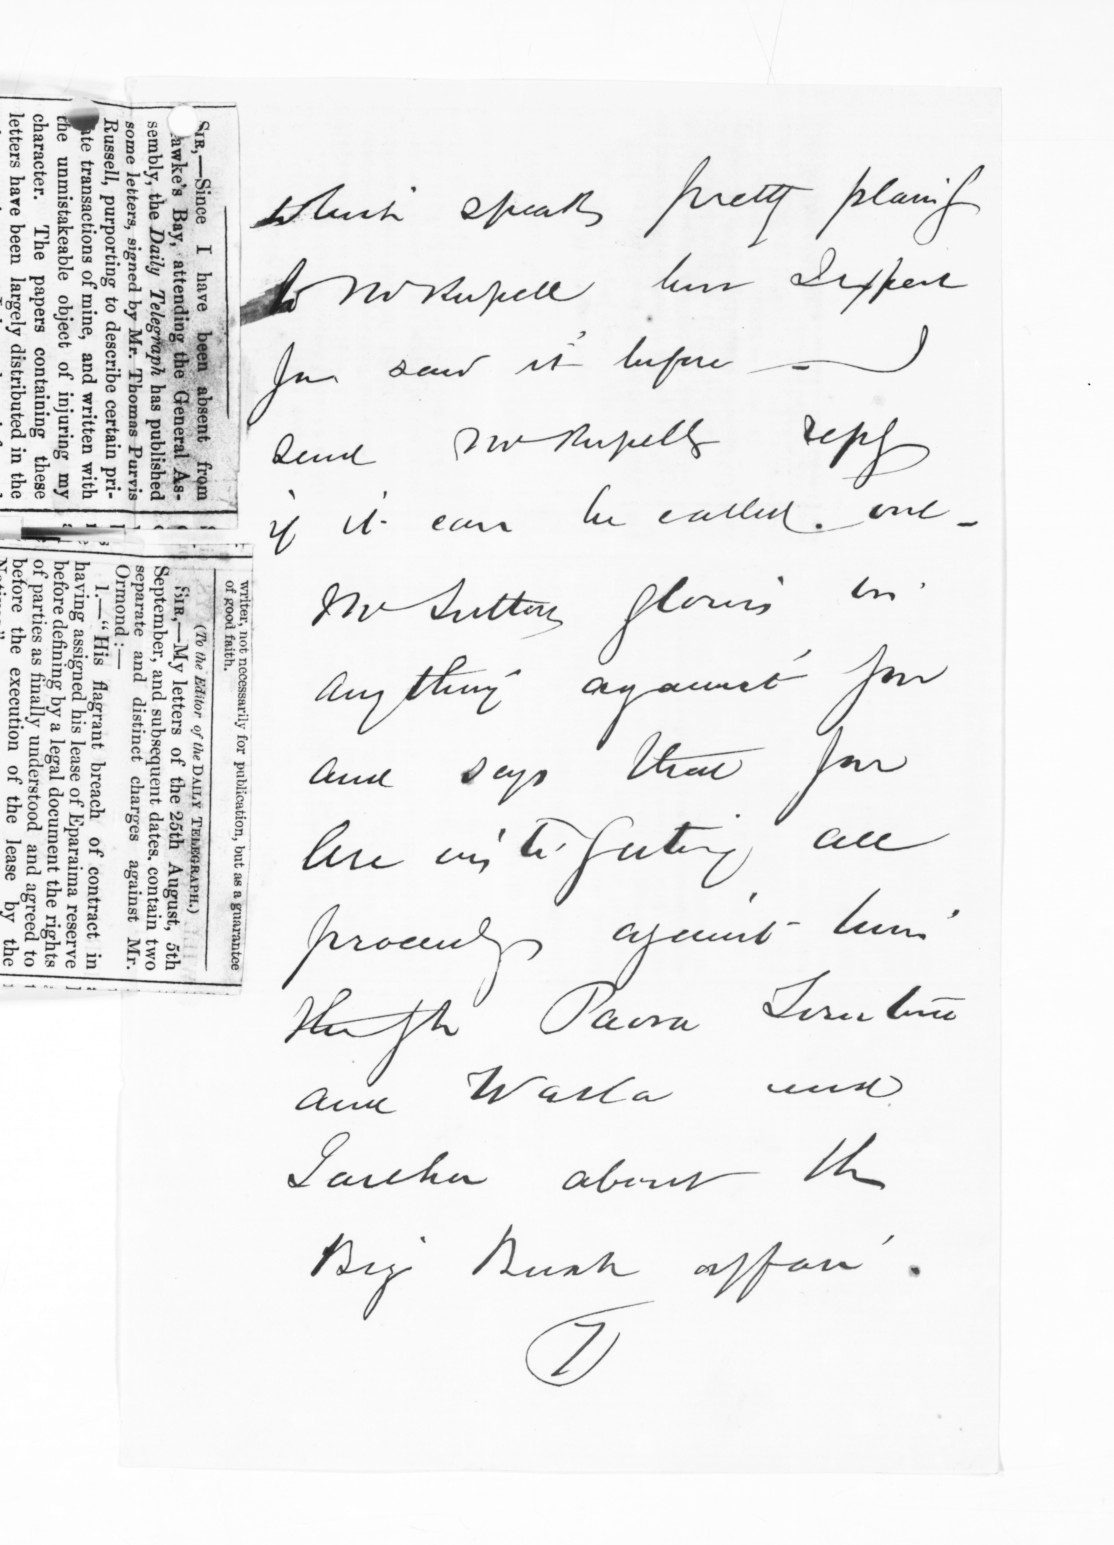 which speaks pretty plainly
to Mr Russell but I expect
you saw it before — I
send Mr Russells reply
if it can be called one -
Mr Sutton glories in
anything against you
and says that you
are instigating all
proceedings against him
through Paora
and and
about the
Big Bush affair.
7
SIR,—Since I have been absent from
awke's Bay, attending the General As-
sembly, the Daily Telegraph has published
some letters, signed by Mr. Thomas Purvis
Russell, purporting to describe certain pri-
te transactions of mine, and written with
the unmistakeable object of injuring my
character. The papers containing these
letters have been largely distributed in the
writer, not necessarily for publication, but as a guarantee
of good faith.
(To the Editor of the DAILY TELEGRAPH.)
SIR,—My letters of the 25th August, 5th
September, and subsequent dates. contain two
separate and distinct charges against Mr.
Ormond:—
1.—"His flagrant breach of contract in
having assigned his lease of Eparaima reserve
before defining by a legal document the rights
of parties as finally understood and agreed to
before the execution of the lease by the